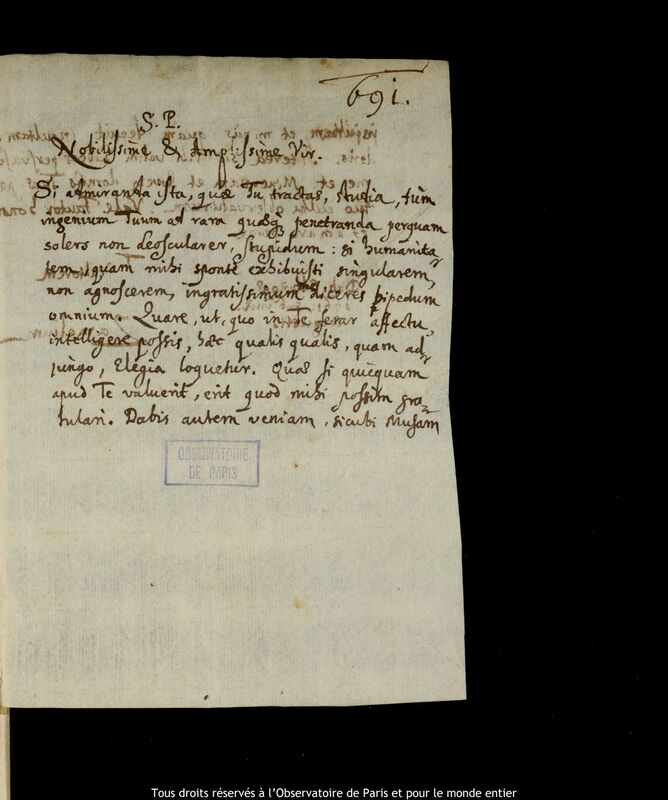 691.
S. P.
Nobilissime & Amplissime Vir.
Si admiranda ista, quæ Tu tractas, studia, tùm
ingenium Tuum ad rara quæqꝫ penetranda perquam
solers non deoscularer, stupidum: si humanita-
tem, quam mihi sponte exhibuisti singularem,
non agnoscerem, ingratissimum diceres bipedum
omnium. Quare, ut, quo in Te ferar affectu,
intelligere possis, hæc qualis qualis, quam ad-
jungo, Elegia loquetur. Quæ si quicquam
apud Te valuerit, erit quod mihi possim gra-
tulari. Dabis autem veniam, sicubi Musam
OBSERVATOIRE
DE PARIS
Tous droits réservés à l'Observatoire de Paris et pour le monde entier